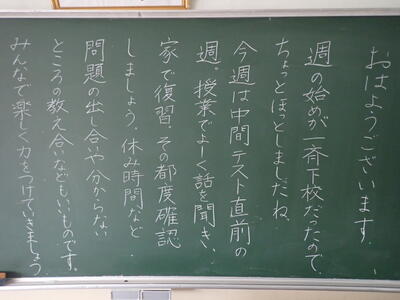 おはようございます。
週の始めが一斉下校だったので、
ちょっとほっとしましたね。
今週は中間テスト直前の
週。授業でよーく話を聞き、
家で復習。その都度確認
しましょう。休み時間など
問題の出し合いや分からない
ところの教え合いなどもいいものです。
みんなで楽しく力をつけていきましょう